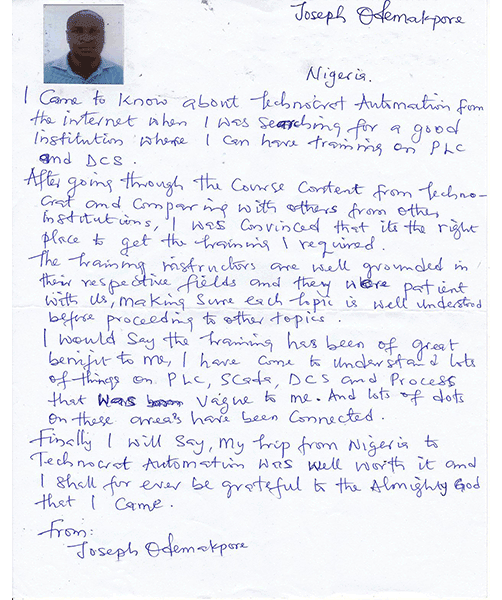 Joseph Odemakpore
Nigeria.
I came to know about Technocrat Automation from
the internet when I was searching for a good
Institution where I can have training on PLC
and DCS.
After going through the Course Content from Techno-
crat and comparing with others from other
Institutions, I was convinced that its the right
place to get the training I required.
The training instructors are well grounded in
their respective fields and they were patient
with us, making sure each topic is well understood
before proceeding to other topics.
I would say the training has been of great
benifit to me, I have come to understand lots
of things on PLC, Scada, DCS and Process
that was vague to me. And lots of dots
on these area's have been connected.
Finally I will say, my trip from Nigeria to
Technocrat Automation was well worth it and
I shall for ever be grateful to the Almighty God
that I came.
From:
Joseph Odemakpore